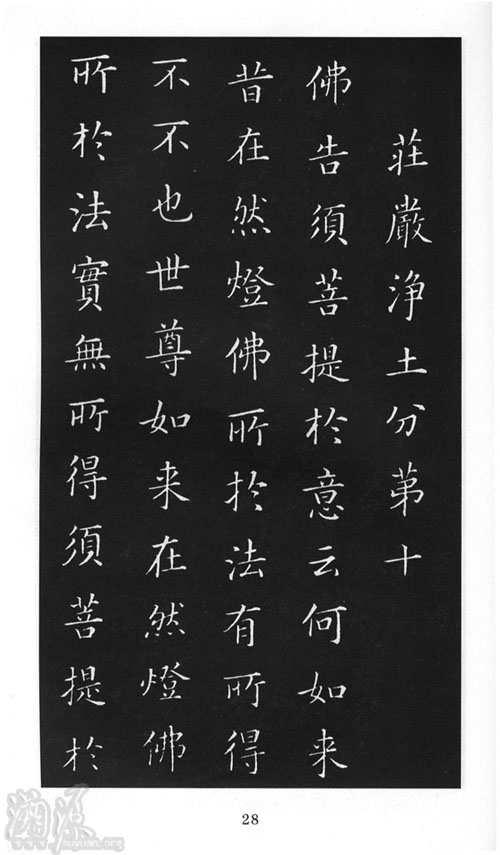 莊嚴淨土分第十
佛告須菩提於意云何如来
昔在然燈佛所於法有所得
不不也世尊如来在然燈佛
所於法實無所得須菩提於
28
溯源
suyuan.org